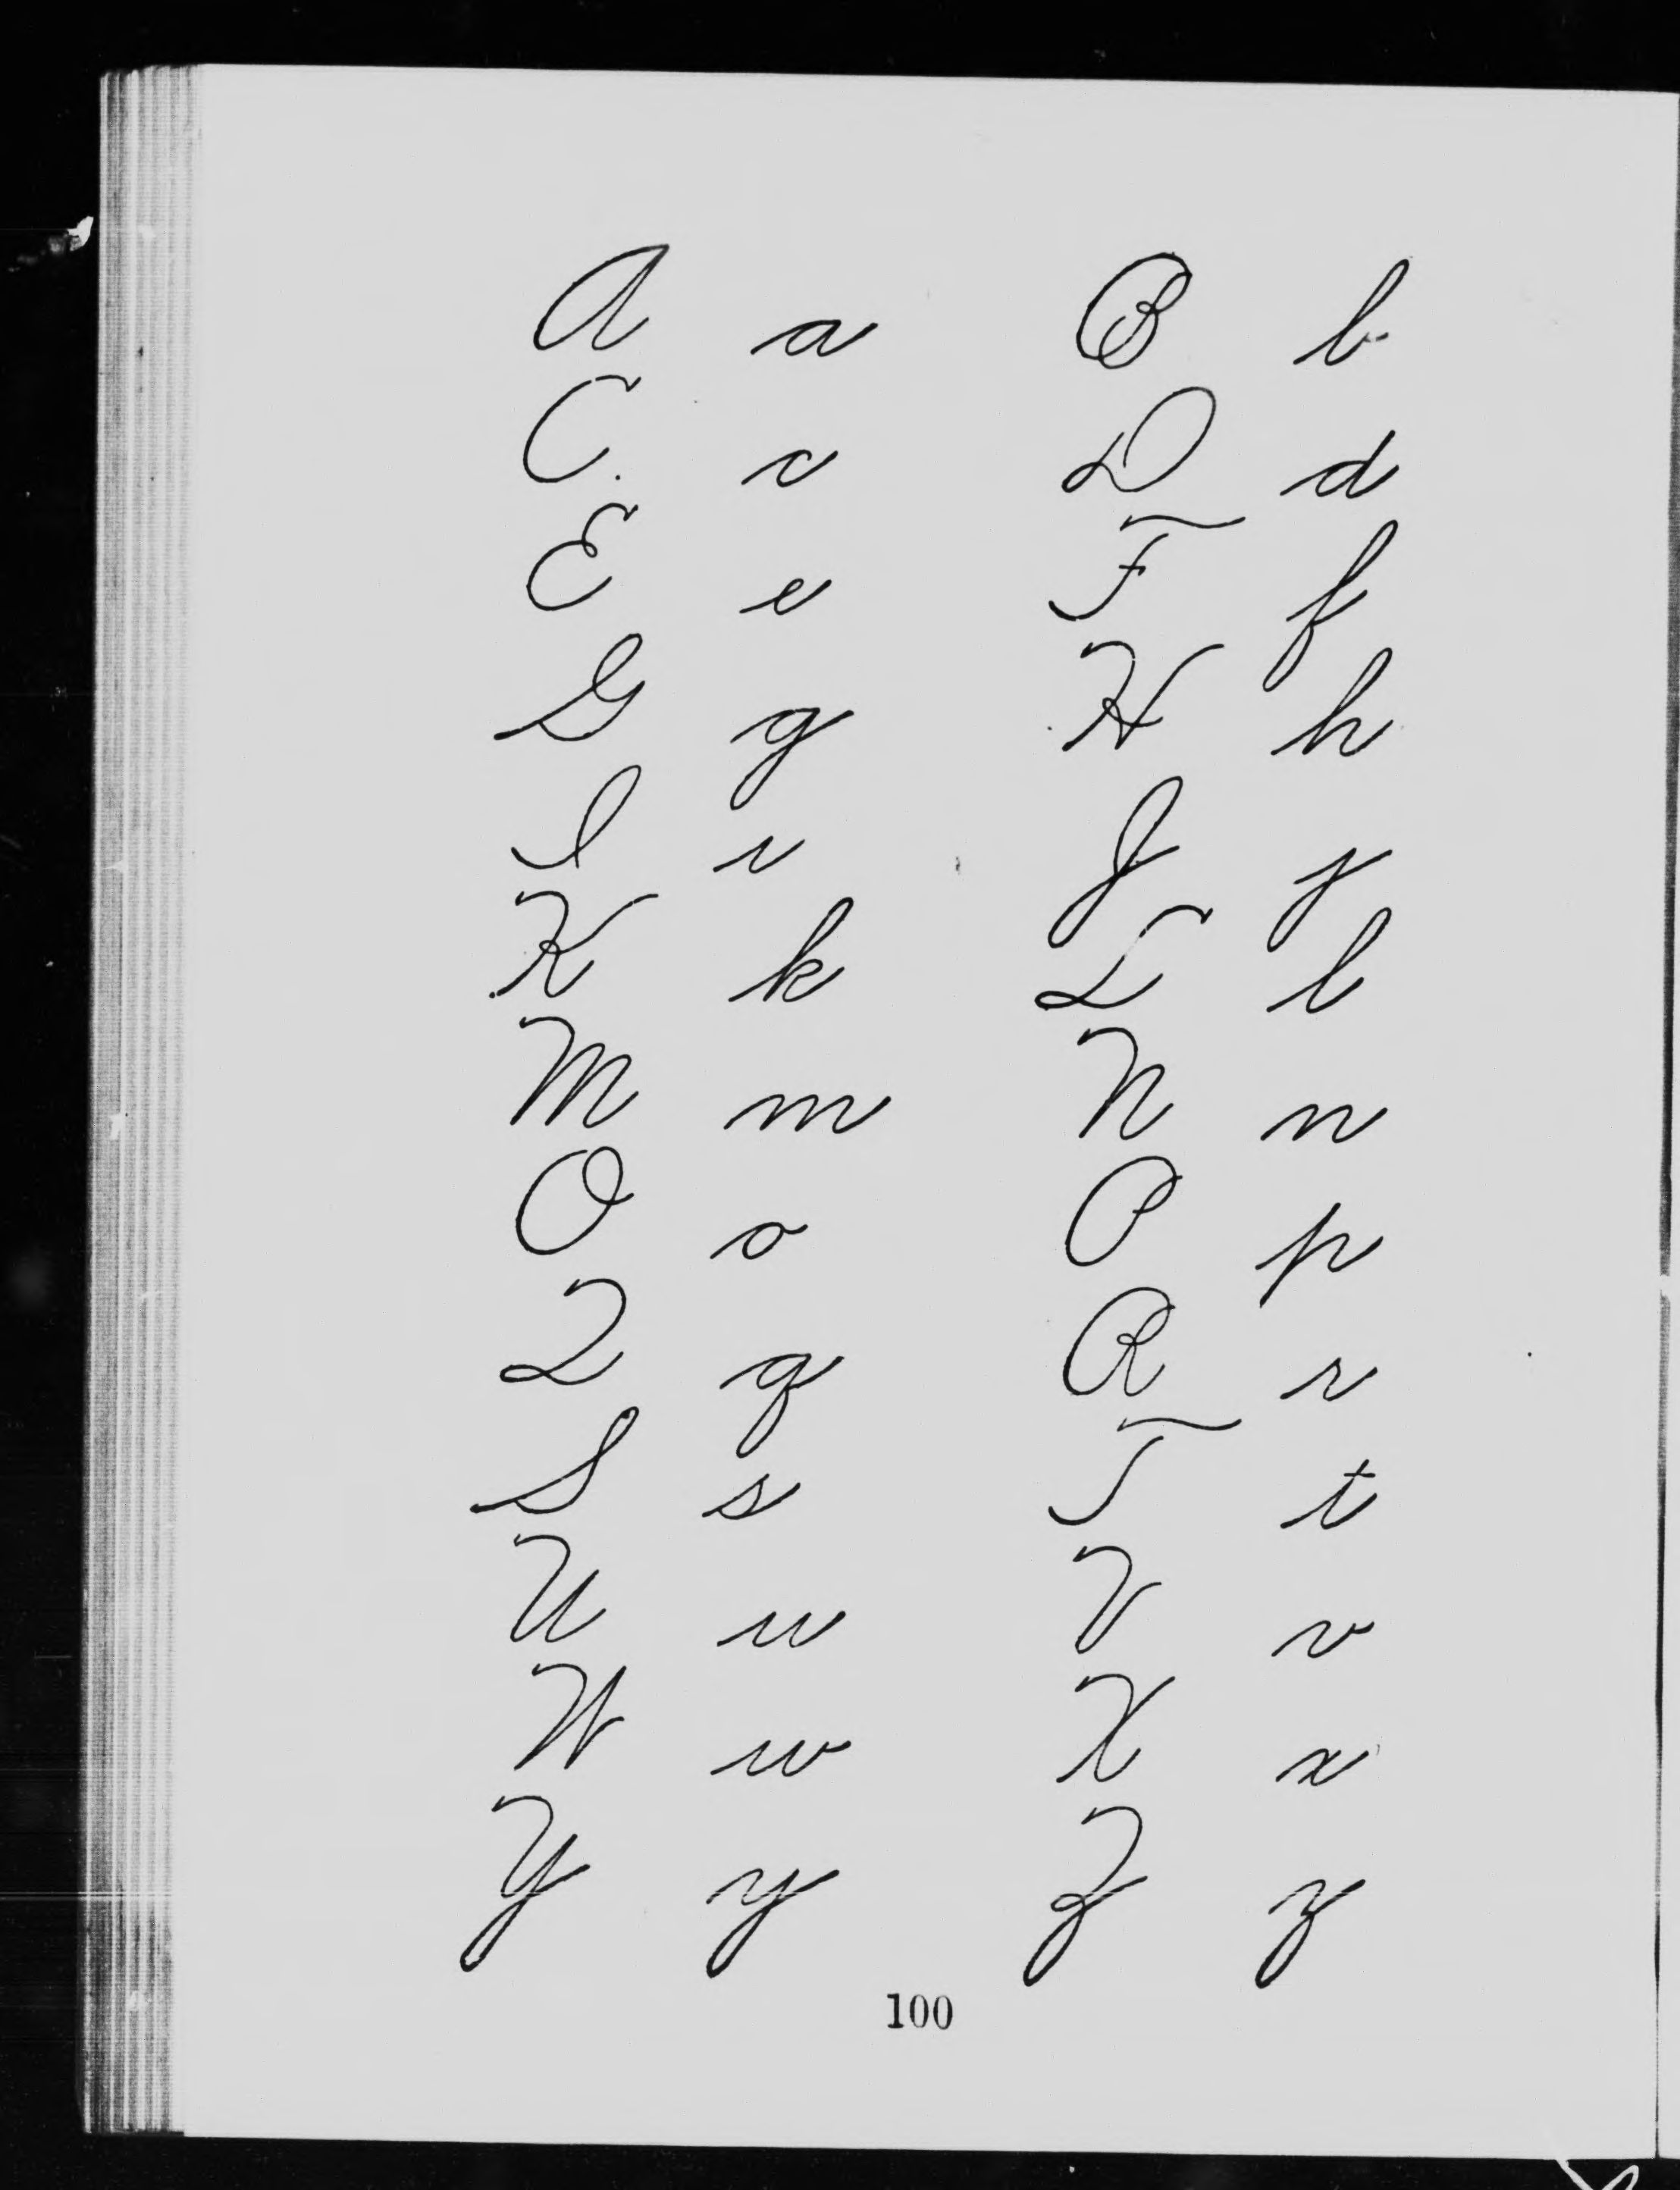 A a B b
C c D d
E e F f
G g H h
I i J j
K k L l
M m N n
O o P p
Q q R r
S s T t
U u V v
W w X x
Y y Z z
100